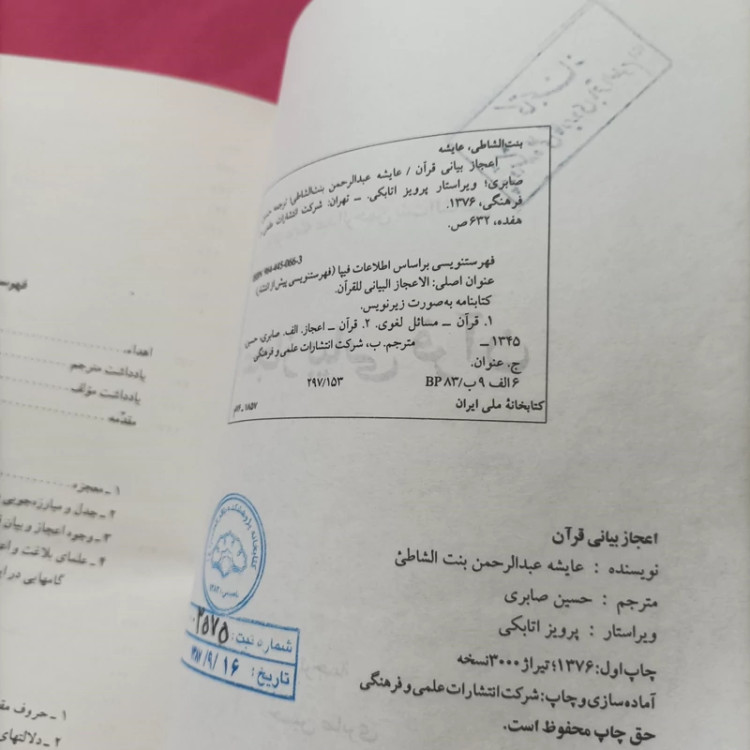 بنت‌الشاطی، عایشه
اعجاز بیانی قرآن / عایشه عبدالرحمن بنت‌الشاطی؛ ترجمه
صابری؛ ویراستار پرویز اتابکی. ــ تهران: شرکت انتشارات علمی
فرهنگی، ۱۳۷۶.
هفده، ۶۳۲ ص.
964-445-066-3
فهرستنویسی براساس اطلاعات فیپا (فهرستنویسی پیش از انتشار)
عنوان اصلی: الاعجاز البیانی للقرآن.
کتابنامه به‌صورت زیرنویس.
۱. قرآن ــ مسائل لغوی. ۲. قرآن ــ اعجاز. الف. صابری، حسین
۱۳۴۵ ــ مترجم. ب. شرکت انتشارات علمی و فرهنگی
ج. عنوان.
۶ الف ۹ ب/ BP ۸۳ ۲۹۷/۱۵۳
کتابخانهٔ ملی ایران
اعجاز بیانی قرآن
نویسنده : عایشه عبدالرحمن بنت الشاطئ
مترجم : حسین صابری
ویراستار : پرویز اتابکی
چاپ اول: ۱۳۷۶؛ تیراژ ۳۰۰۰ نسخه
آماده‌سازی و چاپ: شرکت انتشارات علمی و فرهنگی
حق چاپ محفوظ است.
شماره ثبت: ۲۵۷۵
تاریخ: ۱۶ /۹/
اهداء
یادداشت مترجم
یادداشت مؤلف
مقدّمه
۱ ــ معجزه
۲ ــ جدل و مبارزه‌جویی
۳ ــ وجوه اعجاز و بیان
۴ ــ علمای بلاغت و
گامهایی در
۱ ــ حروف
۲ ــ دلالتهای